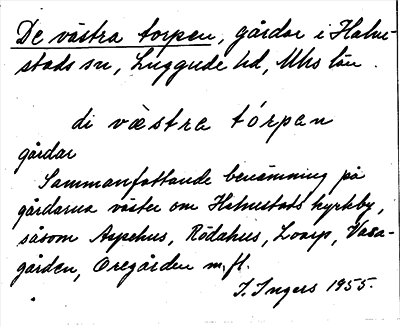 De västra torpen, gårdar i Halm-
stads sn, Luggude hd, Mhs län.
di væstra tórpan
gårdar
Sammanfattande benämning på
gårdarna väster om Halmstads kyrkby,
såsom Aspehus, Rödahus, Loarp, Vasa-
gården, Oregården m.fl.
I. Ingers 1955.